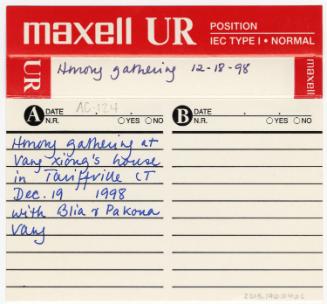 maxell UR POSITION
IEC TYPE I • NORMAL
UR Hmong gathering 12-18-98 maxell
A DATE AC-124
N.R. YES NO
B DATE
N.R. YES NO
Hmong gathering at
Vang Xiong's house
in Tariffville CT
Dec. 19 1998
with Blia & Pakona
Vang